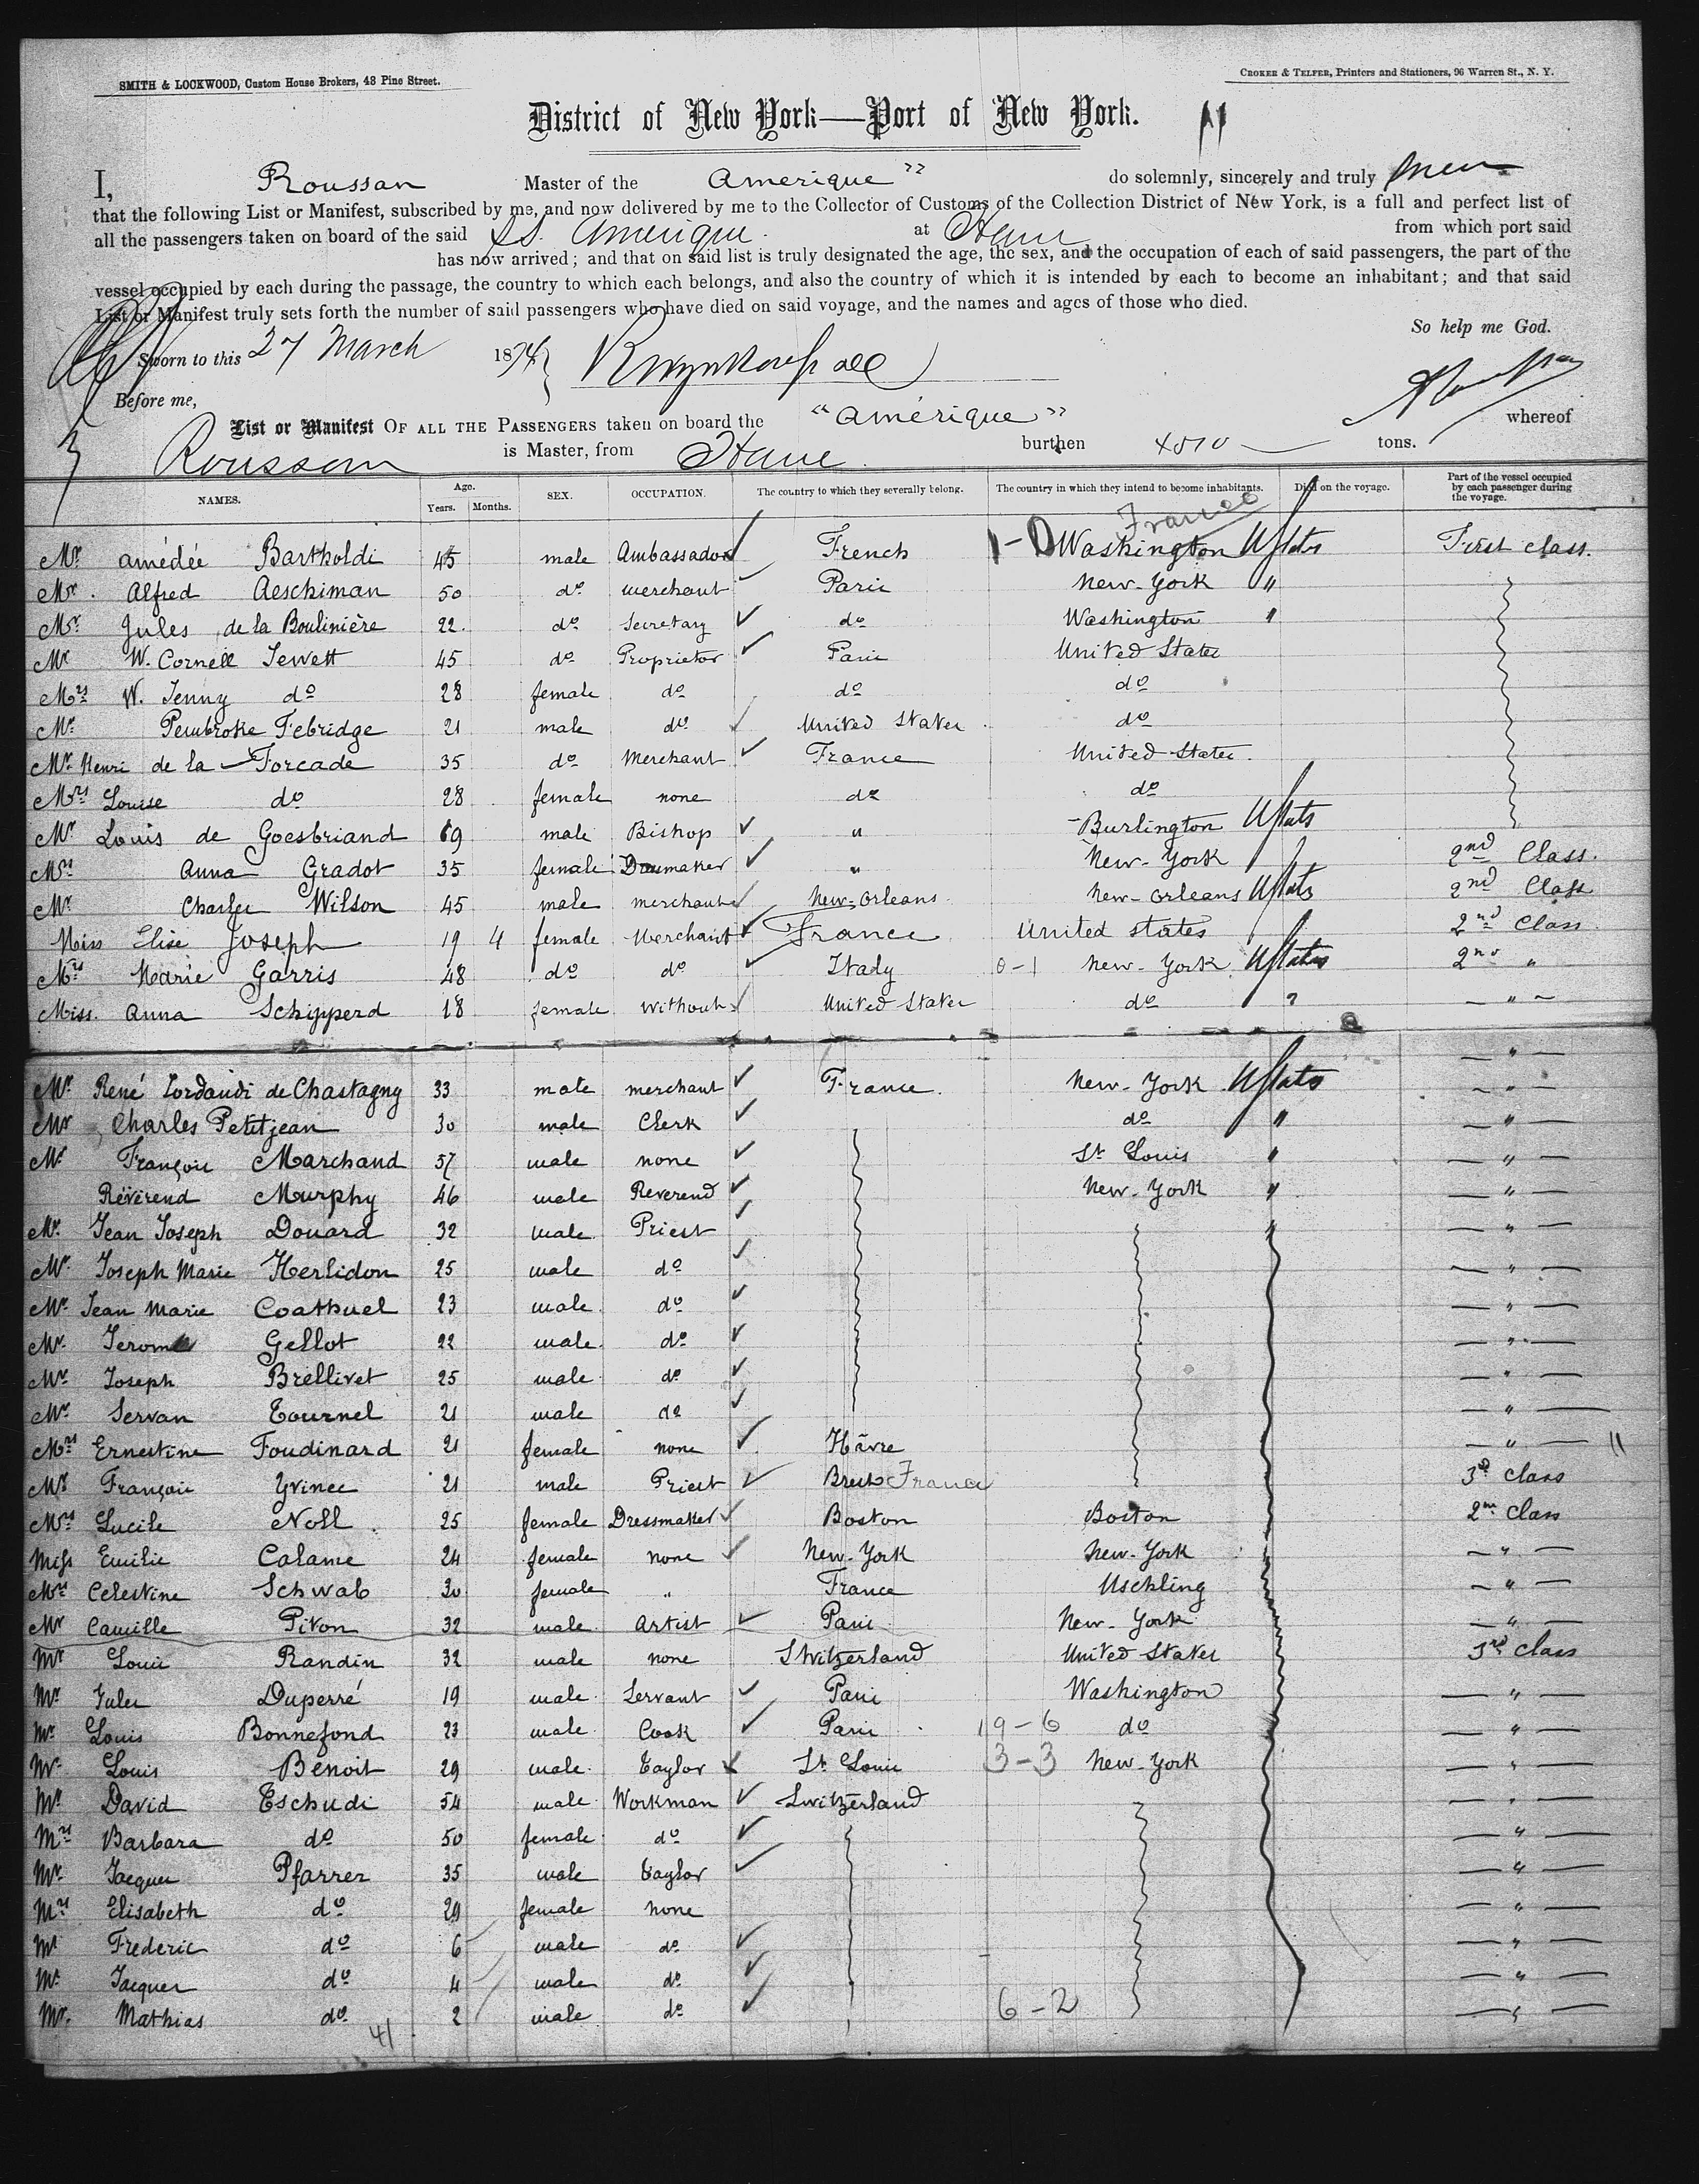 SMITH & LOCKWOOD, Custom House Brokers, 48 Pine Street.
CROKER & TELFER, Printers and Stationers, 96 Warren St., N. Y.
District of New York—Port of New York.
I, Roussan Master of the Amerique" do solemnly, sincerely and truly
that the following List or Manifest, subscribed by me, and now delivered by me to the Collector of Customs of the Collection District of New York, is a full and perfect list of
all the passengers taken on board of the said SS. Amerique at Havre from which port said
has now arrived; and that on said list is truly designated the age, the sex, and the occupation of each of said passengers, the part of the
vessel occupied by each during the passage, the country to which each belongs, and also the country of which it is intended by each to become an inhabitant; and that said
List or Manifest truly sets forth the number of said passengers who have died on said voyage, and the names and ages of those who died.
So help me God.
Sworn to this 27 March 1874
Before me,
List or Manifest OF ALL THE PASSENGERS taken on board the "Amérique" whereof
Roussan is Master, from Havre burthen 4510 tons.
NAMES. Age. Years. Months. SEX. OCCUPATION. The country to which they severally belong. The country in which they intend to become inhabitants. Died on the voyage. Part of the vessel occupied by each passenger during the voyage.
France
Mr. Amédée Bartholdi 45 male Ambassador French 1-0 Washington UStats First class.
Mr. Alfred Aeschiman 50 do merchant Paris New-York "
Mr. Jules de la Boulinière 22 do Secretary do Washington "
Mr W. Cornell Jewett 45 do Proprietor Paris United States
Mrs W. Jenny do 28 female do do do
Mr. Pembroke Febridge 21 male do United States do
Mr. Henri de la Forcade 35 do Merchant France United States.
Mrs Louise do 28 female none do do
Mr Louis de Goesbriand 69 male Bishop " Burlington UStats
Mrs Anna Gradot 35 female " New-York 2nd Class.
Mr. Charles Wilson 45 male merchant New-Orleans New-Orleans UStats 2nd Class
Miss Elise Joseph 19 4 female Merchant France United states 2nd Class
Mrs Marie Garris 48 do do Itady 0-1 New-York UStates 2nd "
Miss. Anna Schipperd 18 female without United States do " — " —
— " —
Mr. René Jordandi de Chastagny 33 male merchant France. New-York UStats — " —
Mr Charles Petitjean 30 male Clerk do " — " —
Mr François Marchand 57 male none St Louis " — " —
Réverend Murphy 46 male Reverend New-York " — " —
Mr. Jean Joseph Douard 32 male Priest " — " —
Mr. Joseph Marie Herlidon 25 male do — " —
Mr. Jean Marie Coathuel 23 male do — " —
Mr. Jerome Gellot 22 male do — " —
Mr. Joseph Brellivet 25 male do — " —
Mr. Servan Tournel 21 male do — " —
Mrs Ernestine Foudinard 21 female none Hâvre — " — 11
Mr François Yvinec 21 male Priest Brest France 3d Class
Mrs Lucile Noll 25 female Dressmaker Boston Boston 2nd Class
Miss Emilie Calame 24 female none New-York New-York — " —
Mrs Celestine Schwab 30 female " France Uschling — " —
Mr Camille Piton 32 male Artist Paris New-York — " —
Mr Louis Randin 32 male none Switzerland United States 3rd Class
Mr. Jules Duperré 19 male Servant Paris Washington — " —
Mr. Louis Bonnefond 23 male Cook Paris 19-6 do — " —
Mr. Louis Benoit 29 male Taylor St Louis 3-3 New-York — " —
Mr David Tschudi 54 male Workman Switzerland — " —
Mrs Barbara do 50 female do — " —
Mr. Jacques Pfarrer 35 male Taylor — " —
Mrs Elisabeth do 29 female none — " —
Mr Frederic do 6 male do — " —
Mr. Jacques do 4 male do — " —
Mr. Mathias do 2 male do 6-2 — " —
41